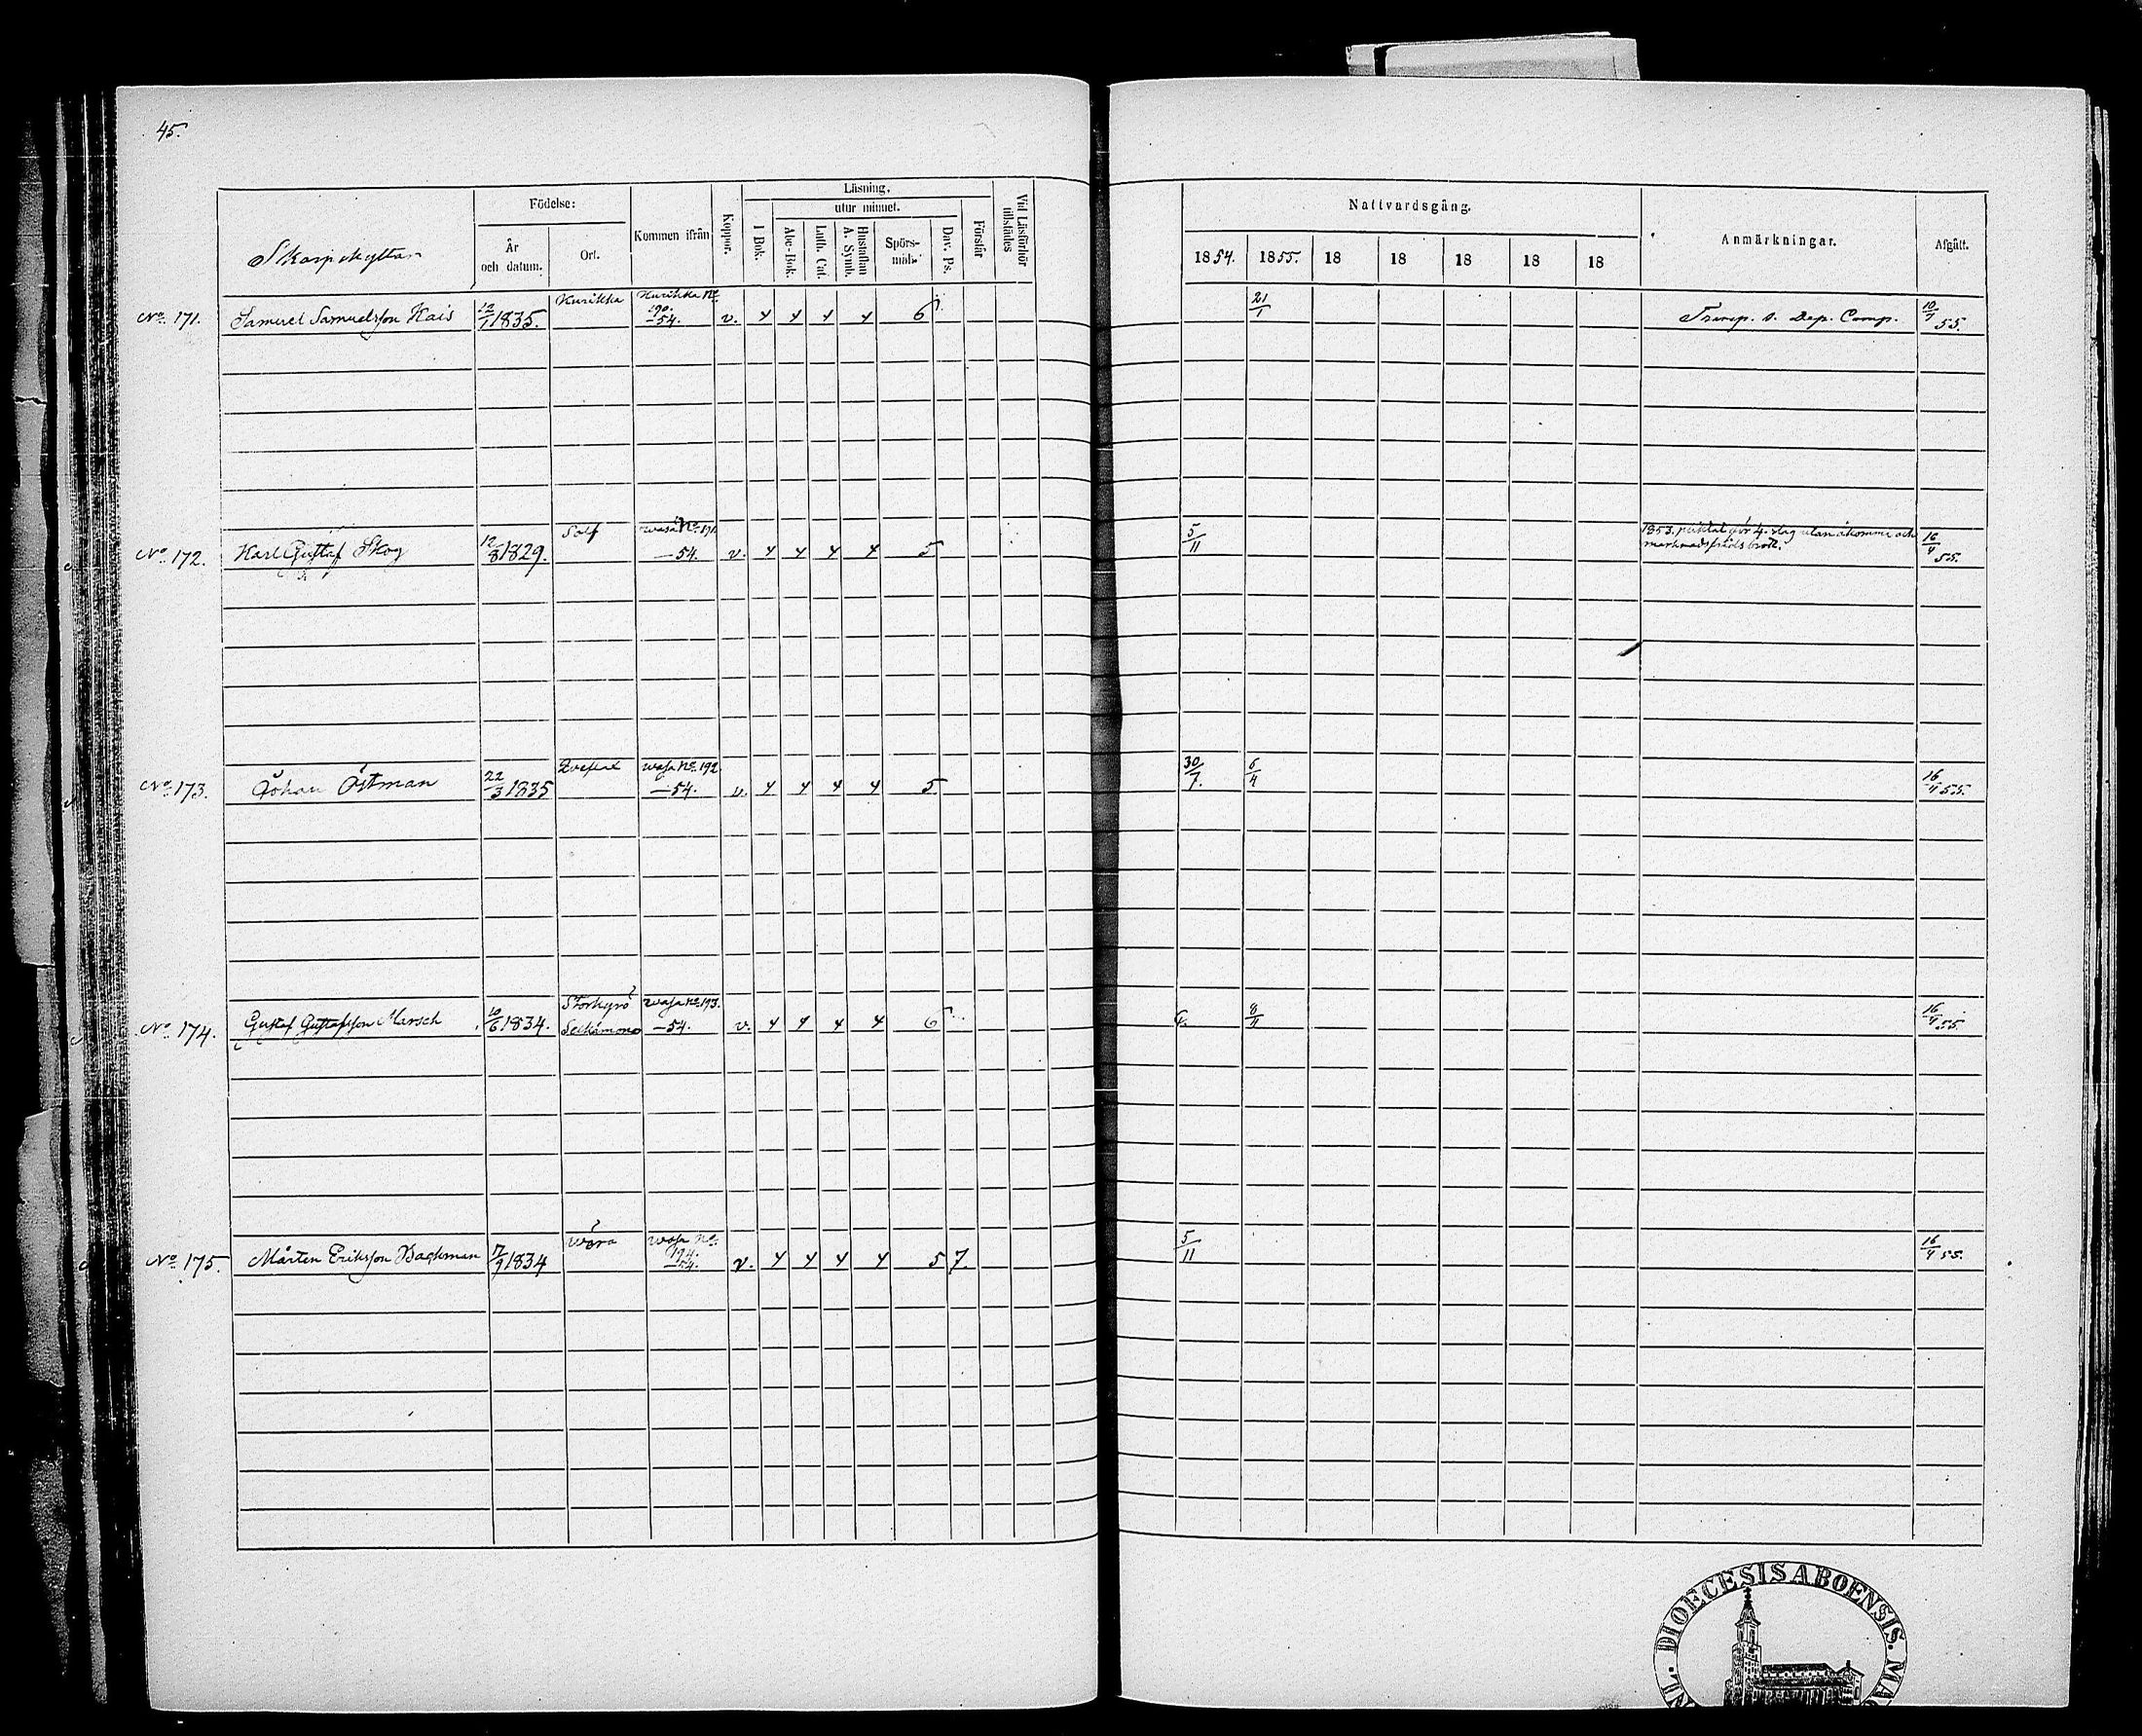 45.
Skarpskyttar
Födelse:
År och datum.
Ort.
Kommen ifrån
Koppor.
Läsning.
utur minnet.
I Bok.
Abc-Bok.
Luth. Cat.
Hustaflan A. Symb.
Spörs-mål.
Dav. Ps.
Förstår
Vid Läsförhör tillstädes
Nattvardsgång.
1854. 1855. 18 18 18 18 18
Anmärkningar.
Afgått.
No 171. Samuel Samuelsson Kais 12/1 1835. Kurikka Kurikka No 190. -54. v. 4 4 4 4 6 21/1 Transp. t. Dep. Comp. 10/4 55.
No 172. Karl Gustaf Skog 12/8 1829. Solf Wasa No 191. -54. v. 4 4 4 4 5 5/11 1853. pliktat för 4 slag utan åkomma och marknadsfridsbrott. 16/4 55.
No 173. Johan Östman 22/3 1835 Qveflax Wasa No 192. -54. v. 4 4 4 4 5 30/7. 6/4 16/4 55.
No 174. Gustaf Gustafsson Marsch 10/6 1834. Storkyrö Wasa No 193. -54. v. 4 4 4 4 6 8/4 16/4 55.
No 175. Mårten Eriksson Backman 17/9 1834 Wörå Wasa No 194. -54. v. 4 4 4 4 5 7. 5/11 16/4 55.
DIOECESIS ABOENSIS.